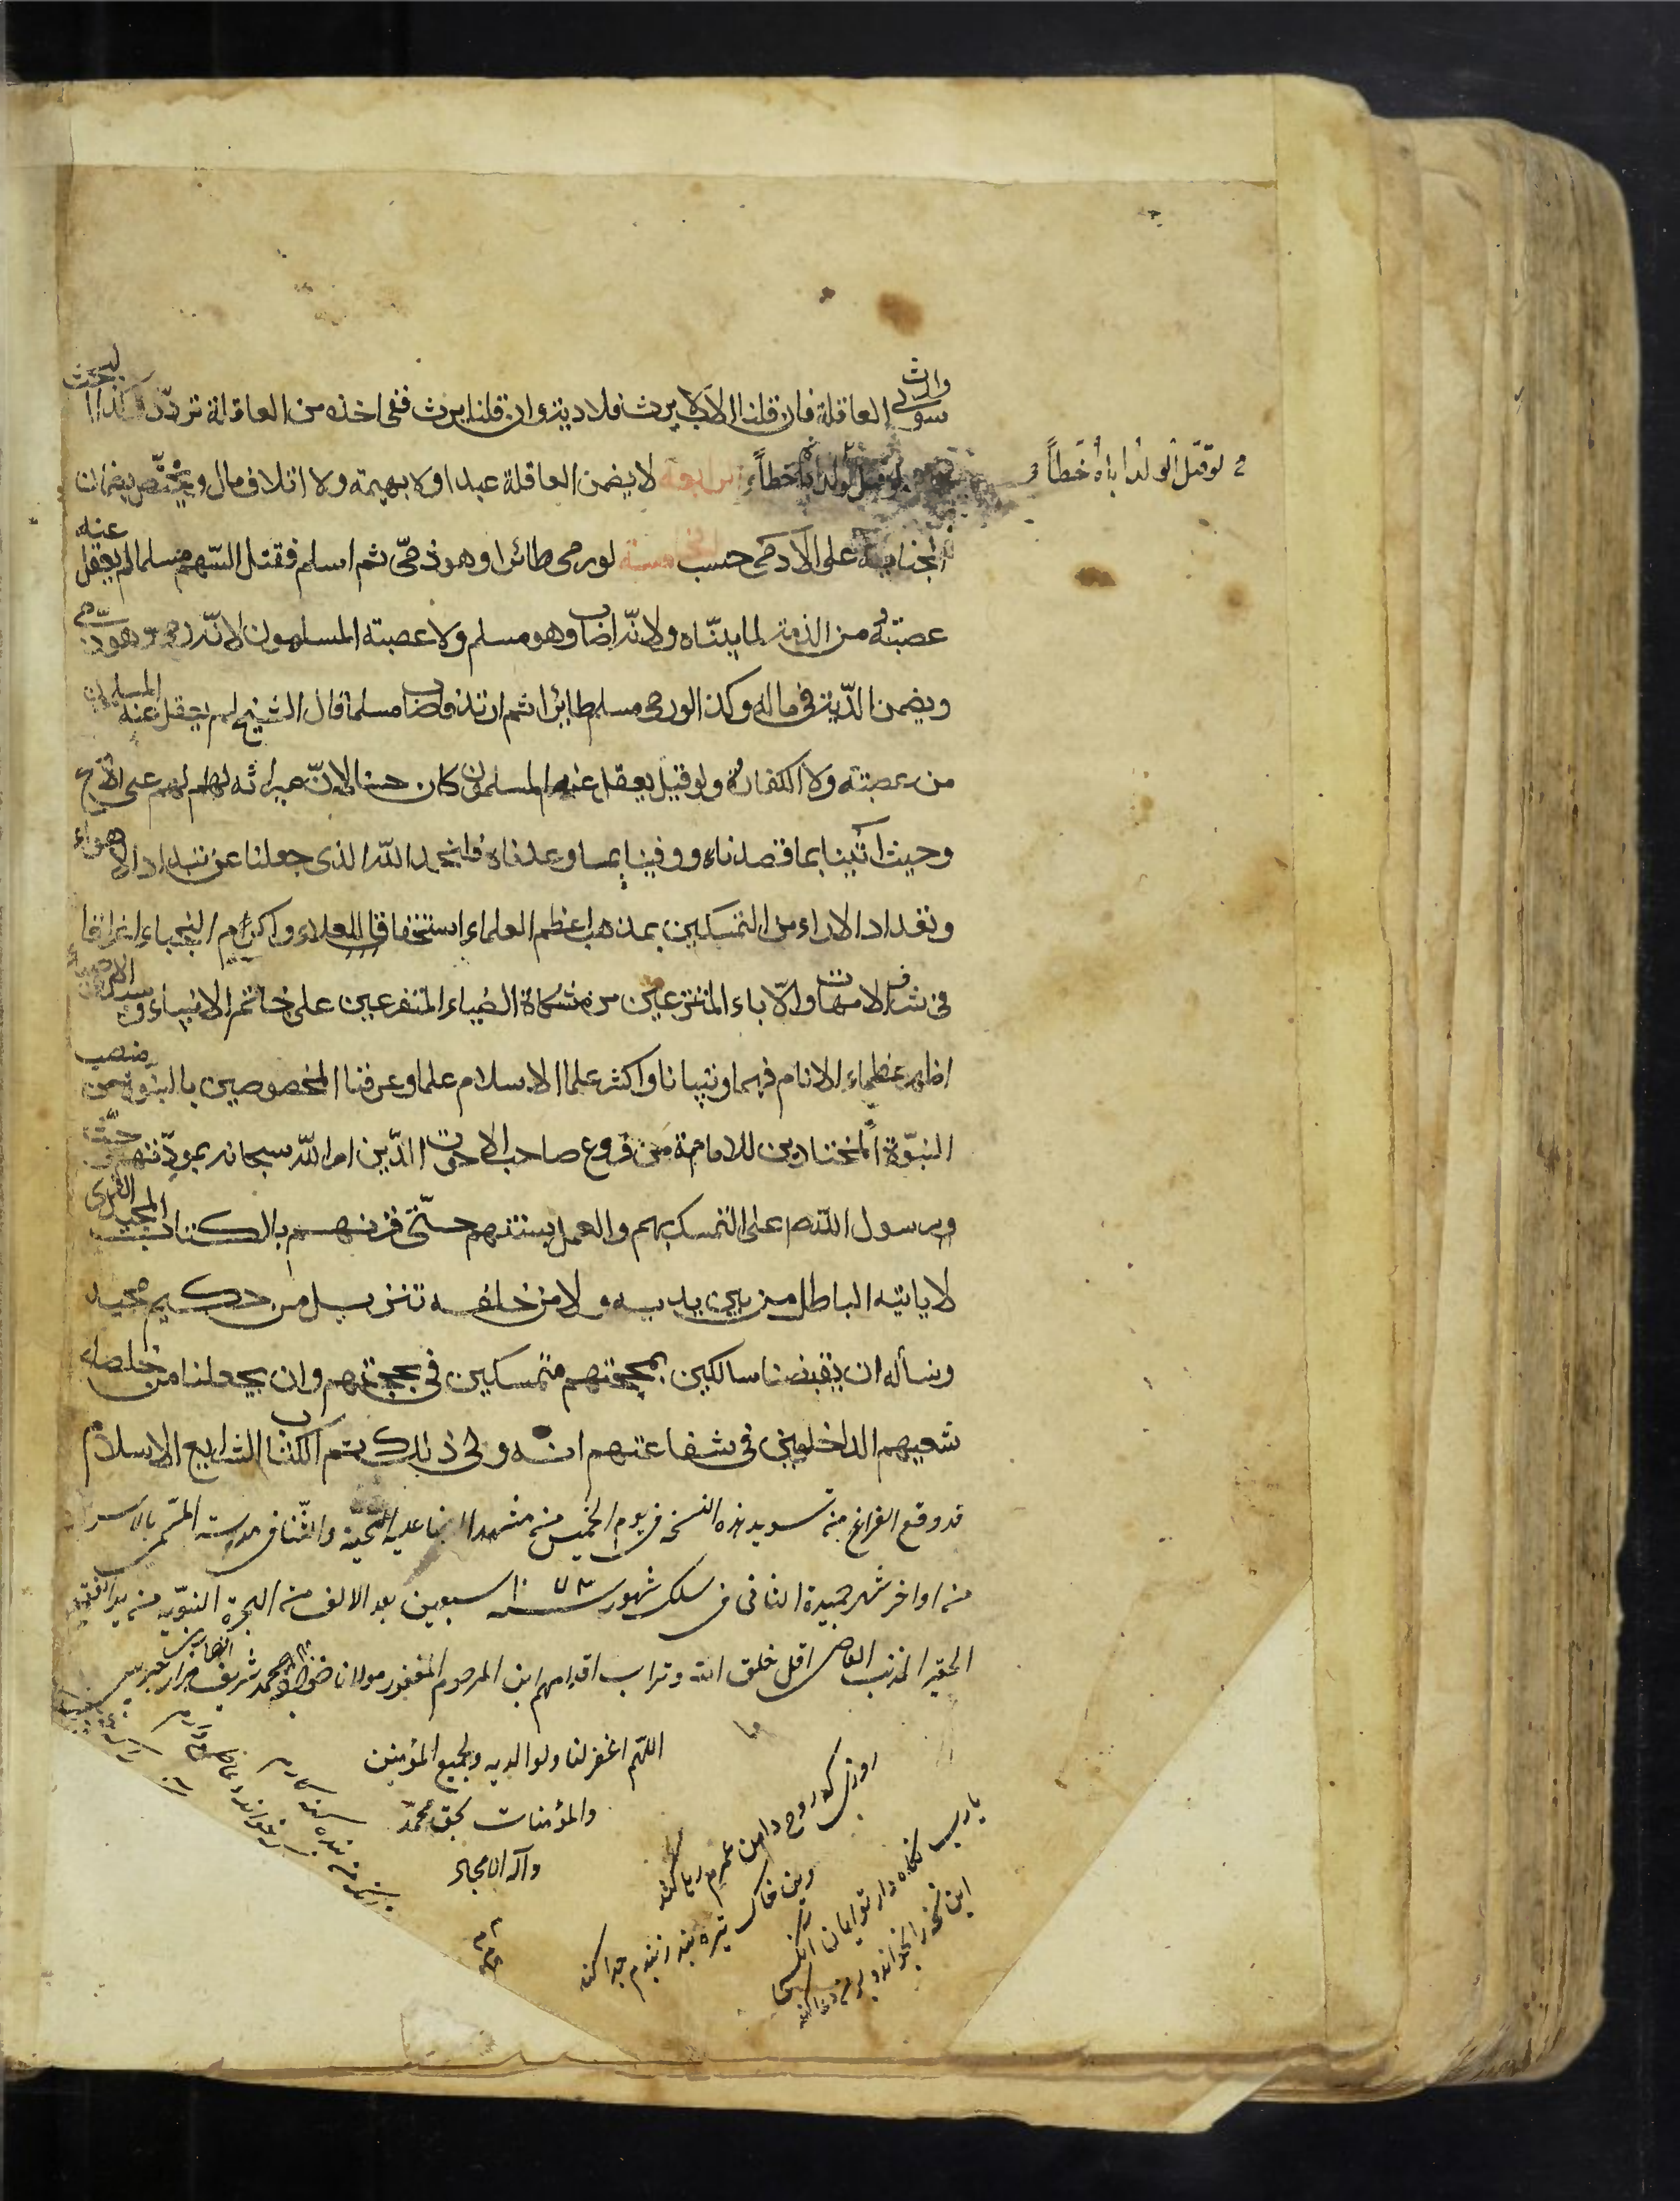 وارث
سوى العاقلة فان قلنا الاب لا يرث فلا دية وان قلنا يرث ففى اخذه من العاقلة تردد وكذا البحث
لو قتل الولد اباه خطأً الرابعة لا يضمن العاقلة عبدا ولا بهيمة ولا اتلاف مال ويختص بضمان
لو قتل الولد اباه خطأً
الجناية على الآدمى حسب الخامسة لو رمى طائرا وهو ذمّى ثم اسلم فقتل السّهم مسلما لم يعقل عنه
عصبته من الذمة لما بيّنّاه ولا نّه اصاب وهو مسلم ولا عصبته المسلمون لانّه رمى وهو ذمّى
ويضمن الدّية فى ماله وكذا لو رمى مسلم طائرا ثم ارتد فاصاب مسلما قال الشيخ لم يعقل عنه المسلمون
من عصبته ولا الكفار ولو قيل يعقل عنه المسلمون كان حسنا لانّ ميراثه لهم على الاصح
وحيث اتينا بما قصدناه ووفينا بما وعدناه فلنحمد الله الذى جعلنا عن تبداد الاهواء
وتعداد الاراء من المتمسكين بمذهب اعظم العلماء استحقاقا للعلاء واكرم النجباء اغراقا
فى شرف الامهات والآباء المنتزعين من مشكاة الضياء المتفرعين على خاتم الانبياء وسيد الاوصياء
اظهر عظماء الانام فهما وتبيانا واكثر علما الاسلام علما وعرفنا المخصوصين بالبنوة من منصب
النبّوة المختارين للامامة من فروع صاحب الاخوت الذين امر الله سبحانه بمودّتهم وحثّ
رسول الله ص على التمسك بهم والعمل بسنتهم حتّى قرنهم بالكتاب المجيد الذى
لا ياتيه الباطل من بين يديه ولا من خلفه تنزيل من حكيم حميد
ونسأله ان يقبضنا سالكين بمحجتهم متمسكين فى بحجتهم وان يجعلنا من خلصاء
شعيهم الداخلين فى شفاعتهم انه ولى ذلك تم الكتاب الشرايع الاسلام
قد وقع الفراغ من تسويد هذه النسخه فى يوم الخميس من مشهد الرضا عليه التحية والثنا فى مدرسة المسمى
من اواخر شهر جميدة الثانى فى سلك شهور سنه ١٠٧٨ سبعين بعد الالف من الهجرة النبّويه من يد الفقير
الحقير المذنب العاصى اقل خلق الله وتراب اقدامهم ابن المرحوم المغفور مولانا محمد شريف
اللهّم اغفر لنا ولوالديه ولجميع المؤمنين
والمؤمنات بحق محمد
وآله الامجاد
روزى كه روح دامن عمرم رها كند
وين خاك تيره بند ز بندم جدا كند
يا رب نگاه دار تو ايمان آنكسى
اين نسخه را بخواند و بر من دعا كند